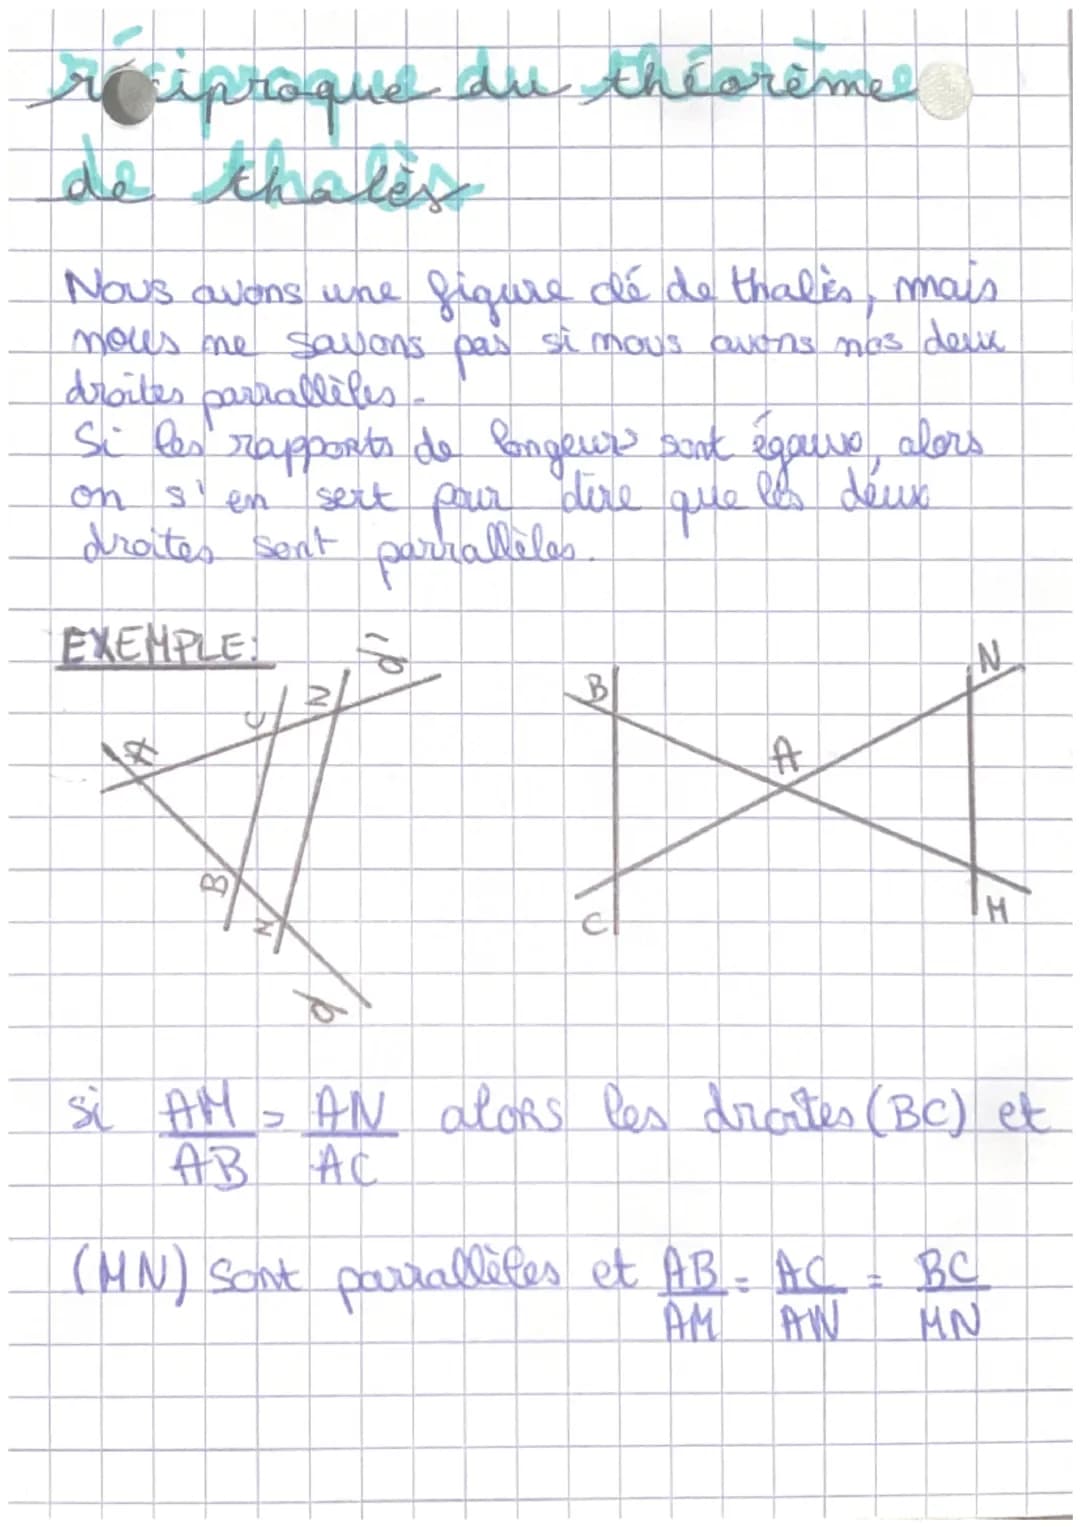 réciproque du théorème
de thalès
Nous avons une figure clé de thalès, mais
nous ne savons pas si nous avons nos deux
droites parrallèles.
Si les rapports de longeurs sont égaux, alors
on s'en sert pour dire que les deux
droites sont parrallèles.
EXEMPLE:
d'
N
C
A
B
M
d
B
N
A
C
M
si AM = AN alors les droites (BC) et
AB AC
(MN) sont parrallèles et AB = AC = BC
AM AN MN